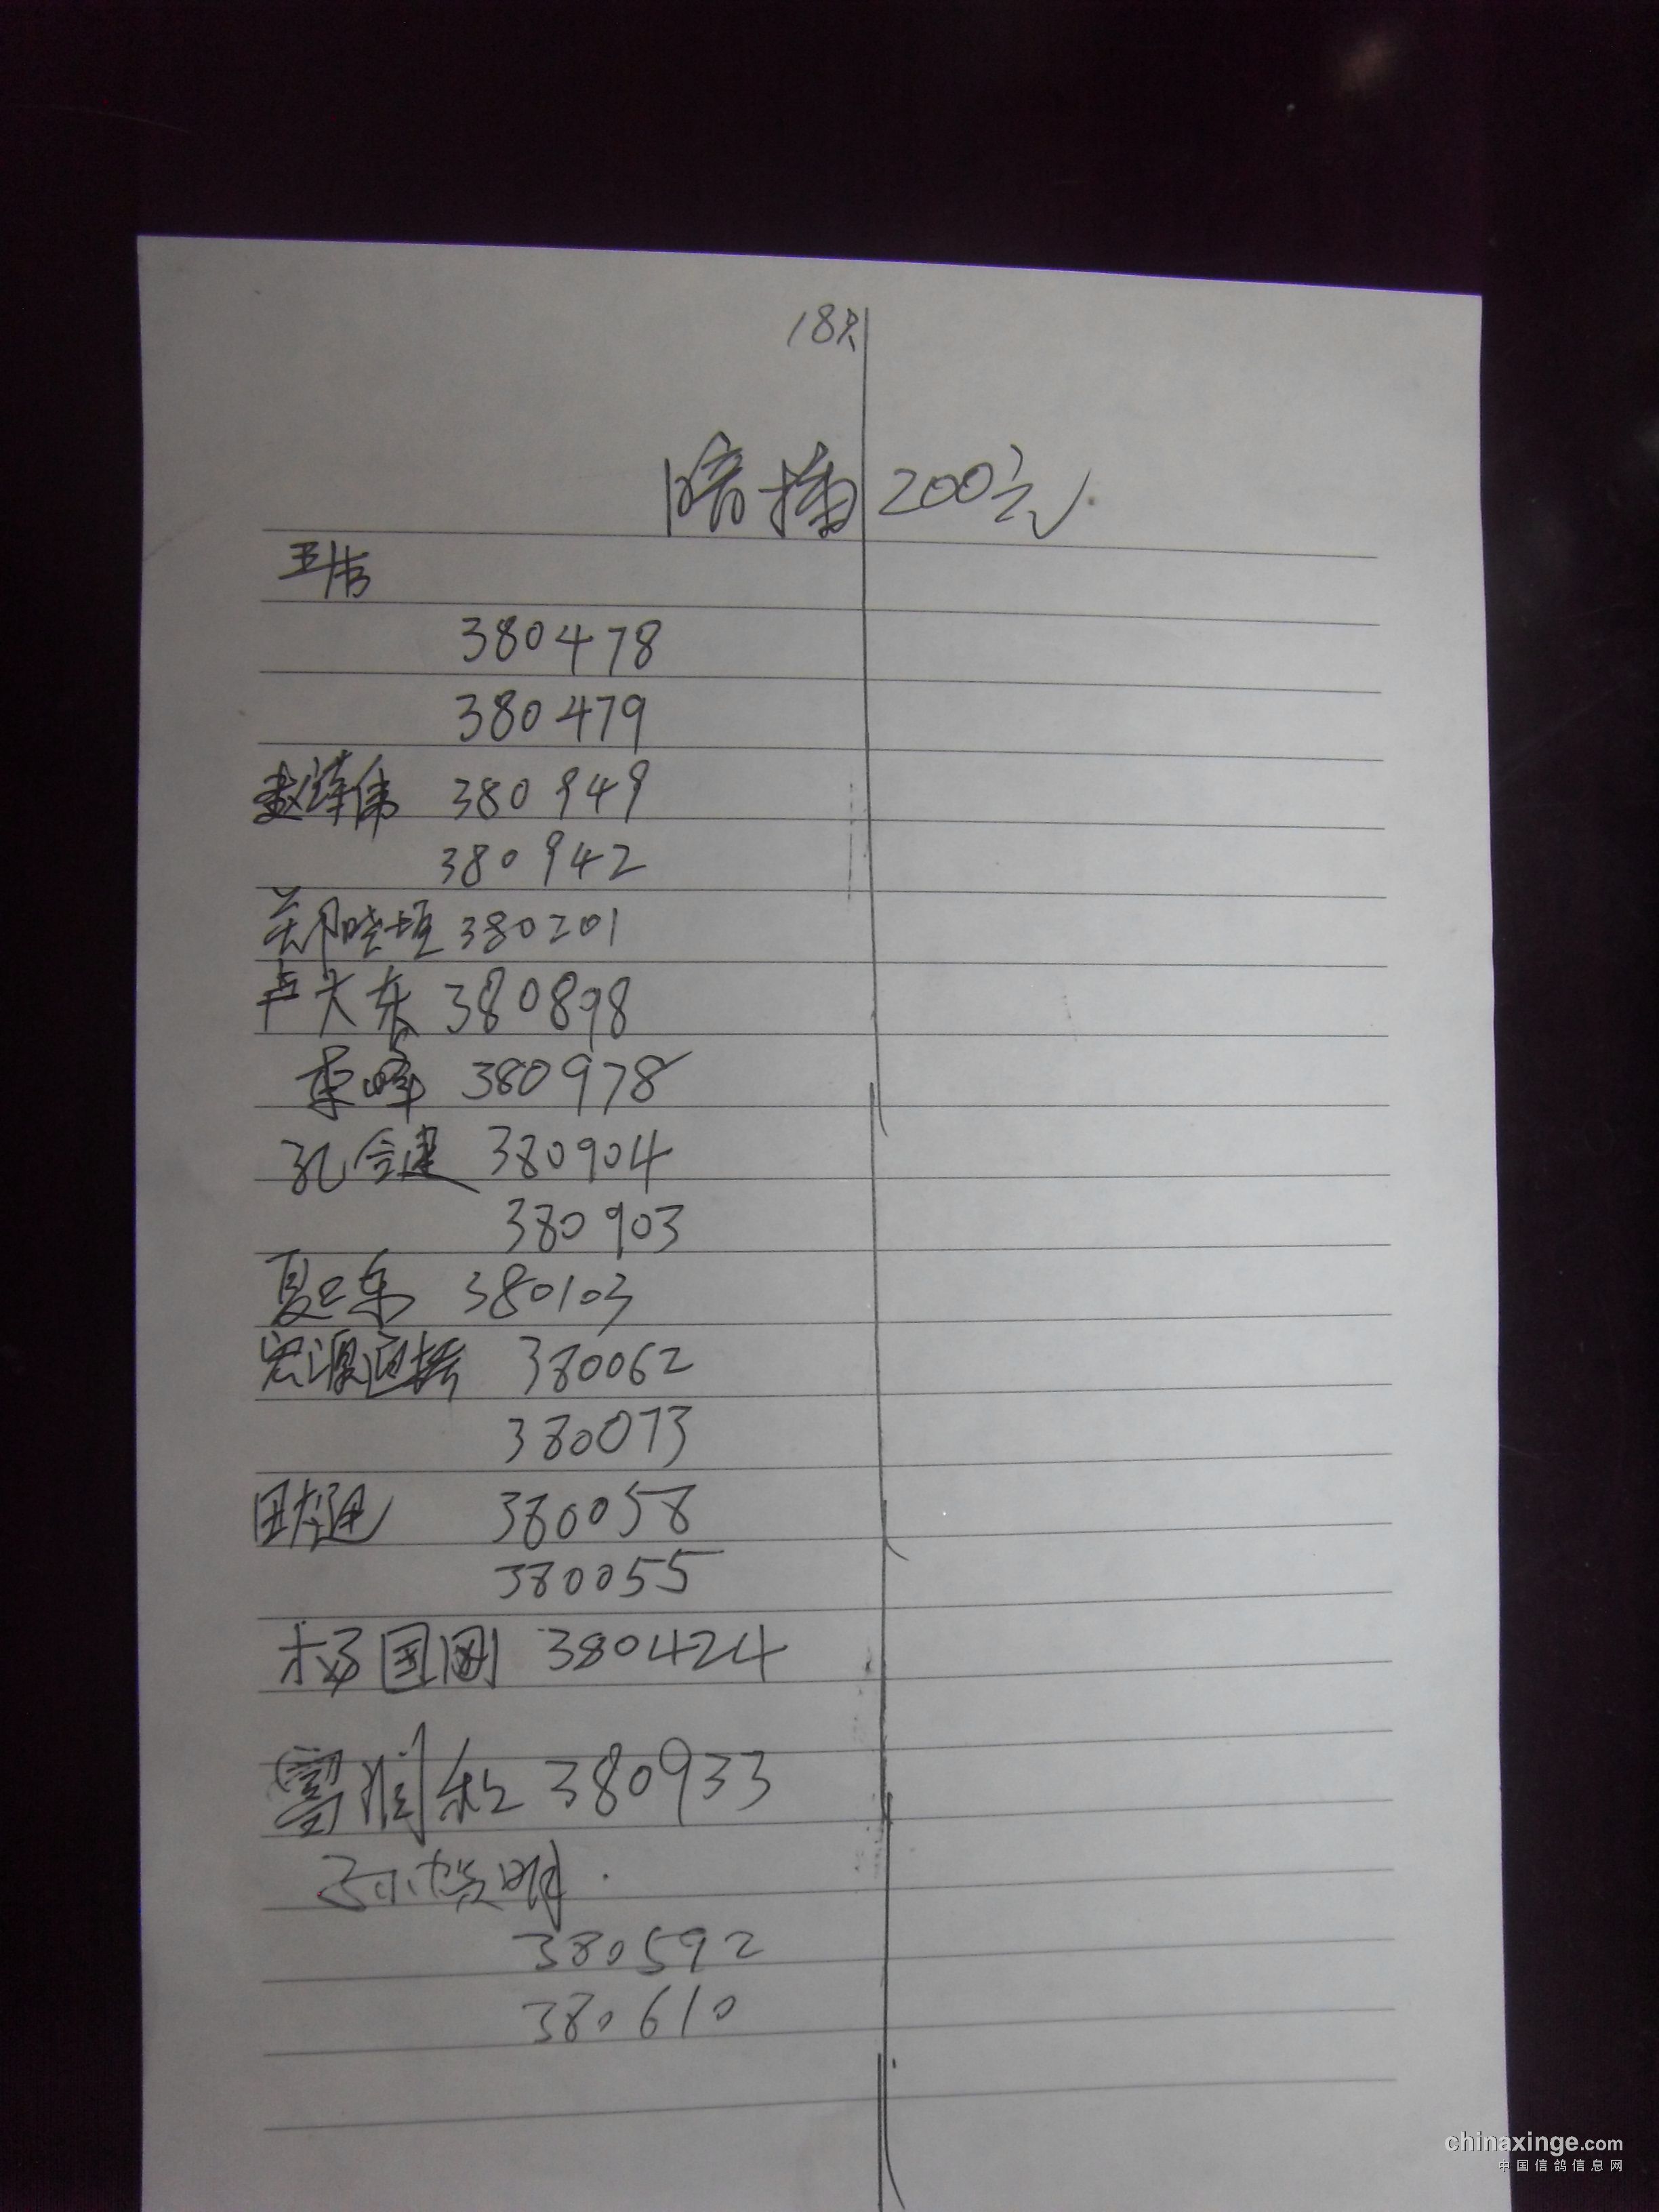 18只
暗插200元
380478
380479
赵泽伟 380949
380942
郑晓垣 380201
卢大东 380898
峰 380978
孔令建 380904
380903
夏 380103
宏源 380062
380073
田 380058
380055
杨国刚 380424
润 380933
孙贺明
380592
380610
chinaxinge.com
中国信鸽信息网